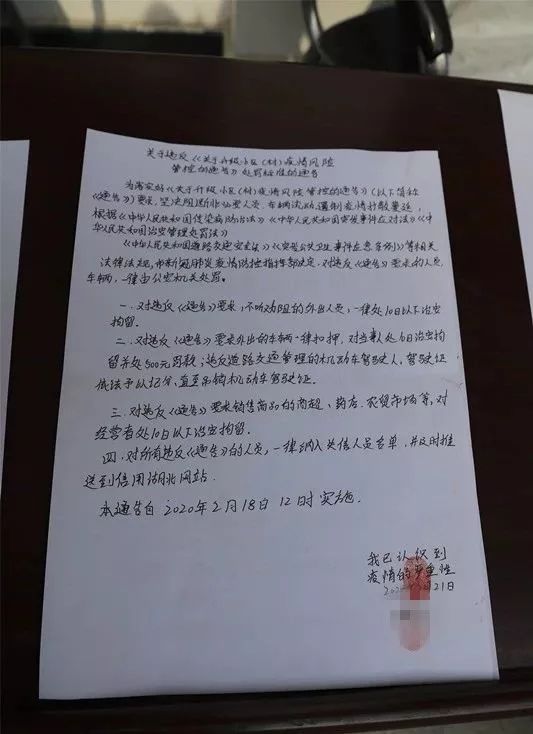 关于违反《关于升级小区(村)疫情风险
管控的通告》处罚标准的通告
为落实好《关于升级小区(村)疫情风险管控的通告》(以下简称
《通告》)要求,坚决阻断非必要人员、车辆流动,遏制疫情扩散蔓延,
根据《中华人民共和国传染病防治法》《中华人民共和国突发事件应对法》《中
华人民共和国治安管理处罚法》
《中华人民共和国道路交通安全法》《突发公共卫生事件应急条例》等相关
法律法规,市新冠肺炎疫情防控指挥部决定,对违反《通告》要求的人员、
车辆,一律由公安机关处罚。
一、对违反《通告》要求,不听劝阻的外出人员,一律处10日以下治安
拘留。
二、对违反《通告》要求外出的车辆一律扣押,对当事人处10日治安拘
留并处500元罚款;违反道路交通管理的机动车驾驶人,驾驶证
依法予以记分,直至吊销机动车驾驶证。
三、对违反《通告》要求销售商品的商超、药店、农贸市场等,对
经营者处10日以下治安拘留。
四、对所有违反《通告》的人员,一律纳入失信人员名单,并及时推
送到信用湖北网站。
本通告自2020年2月18日12时实施。
我已认识到
疫情的严重性
21日